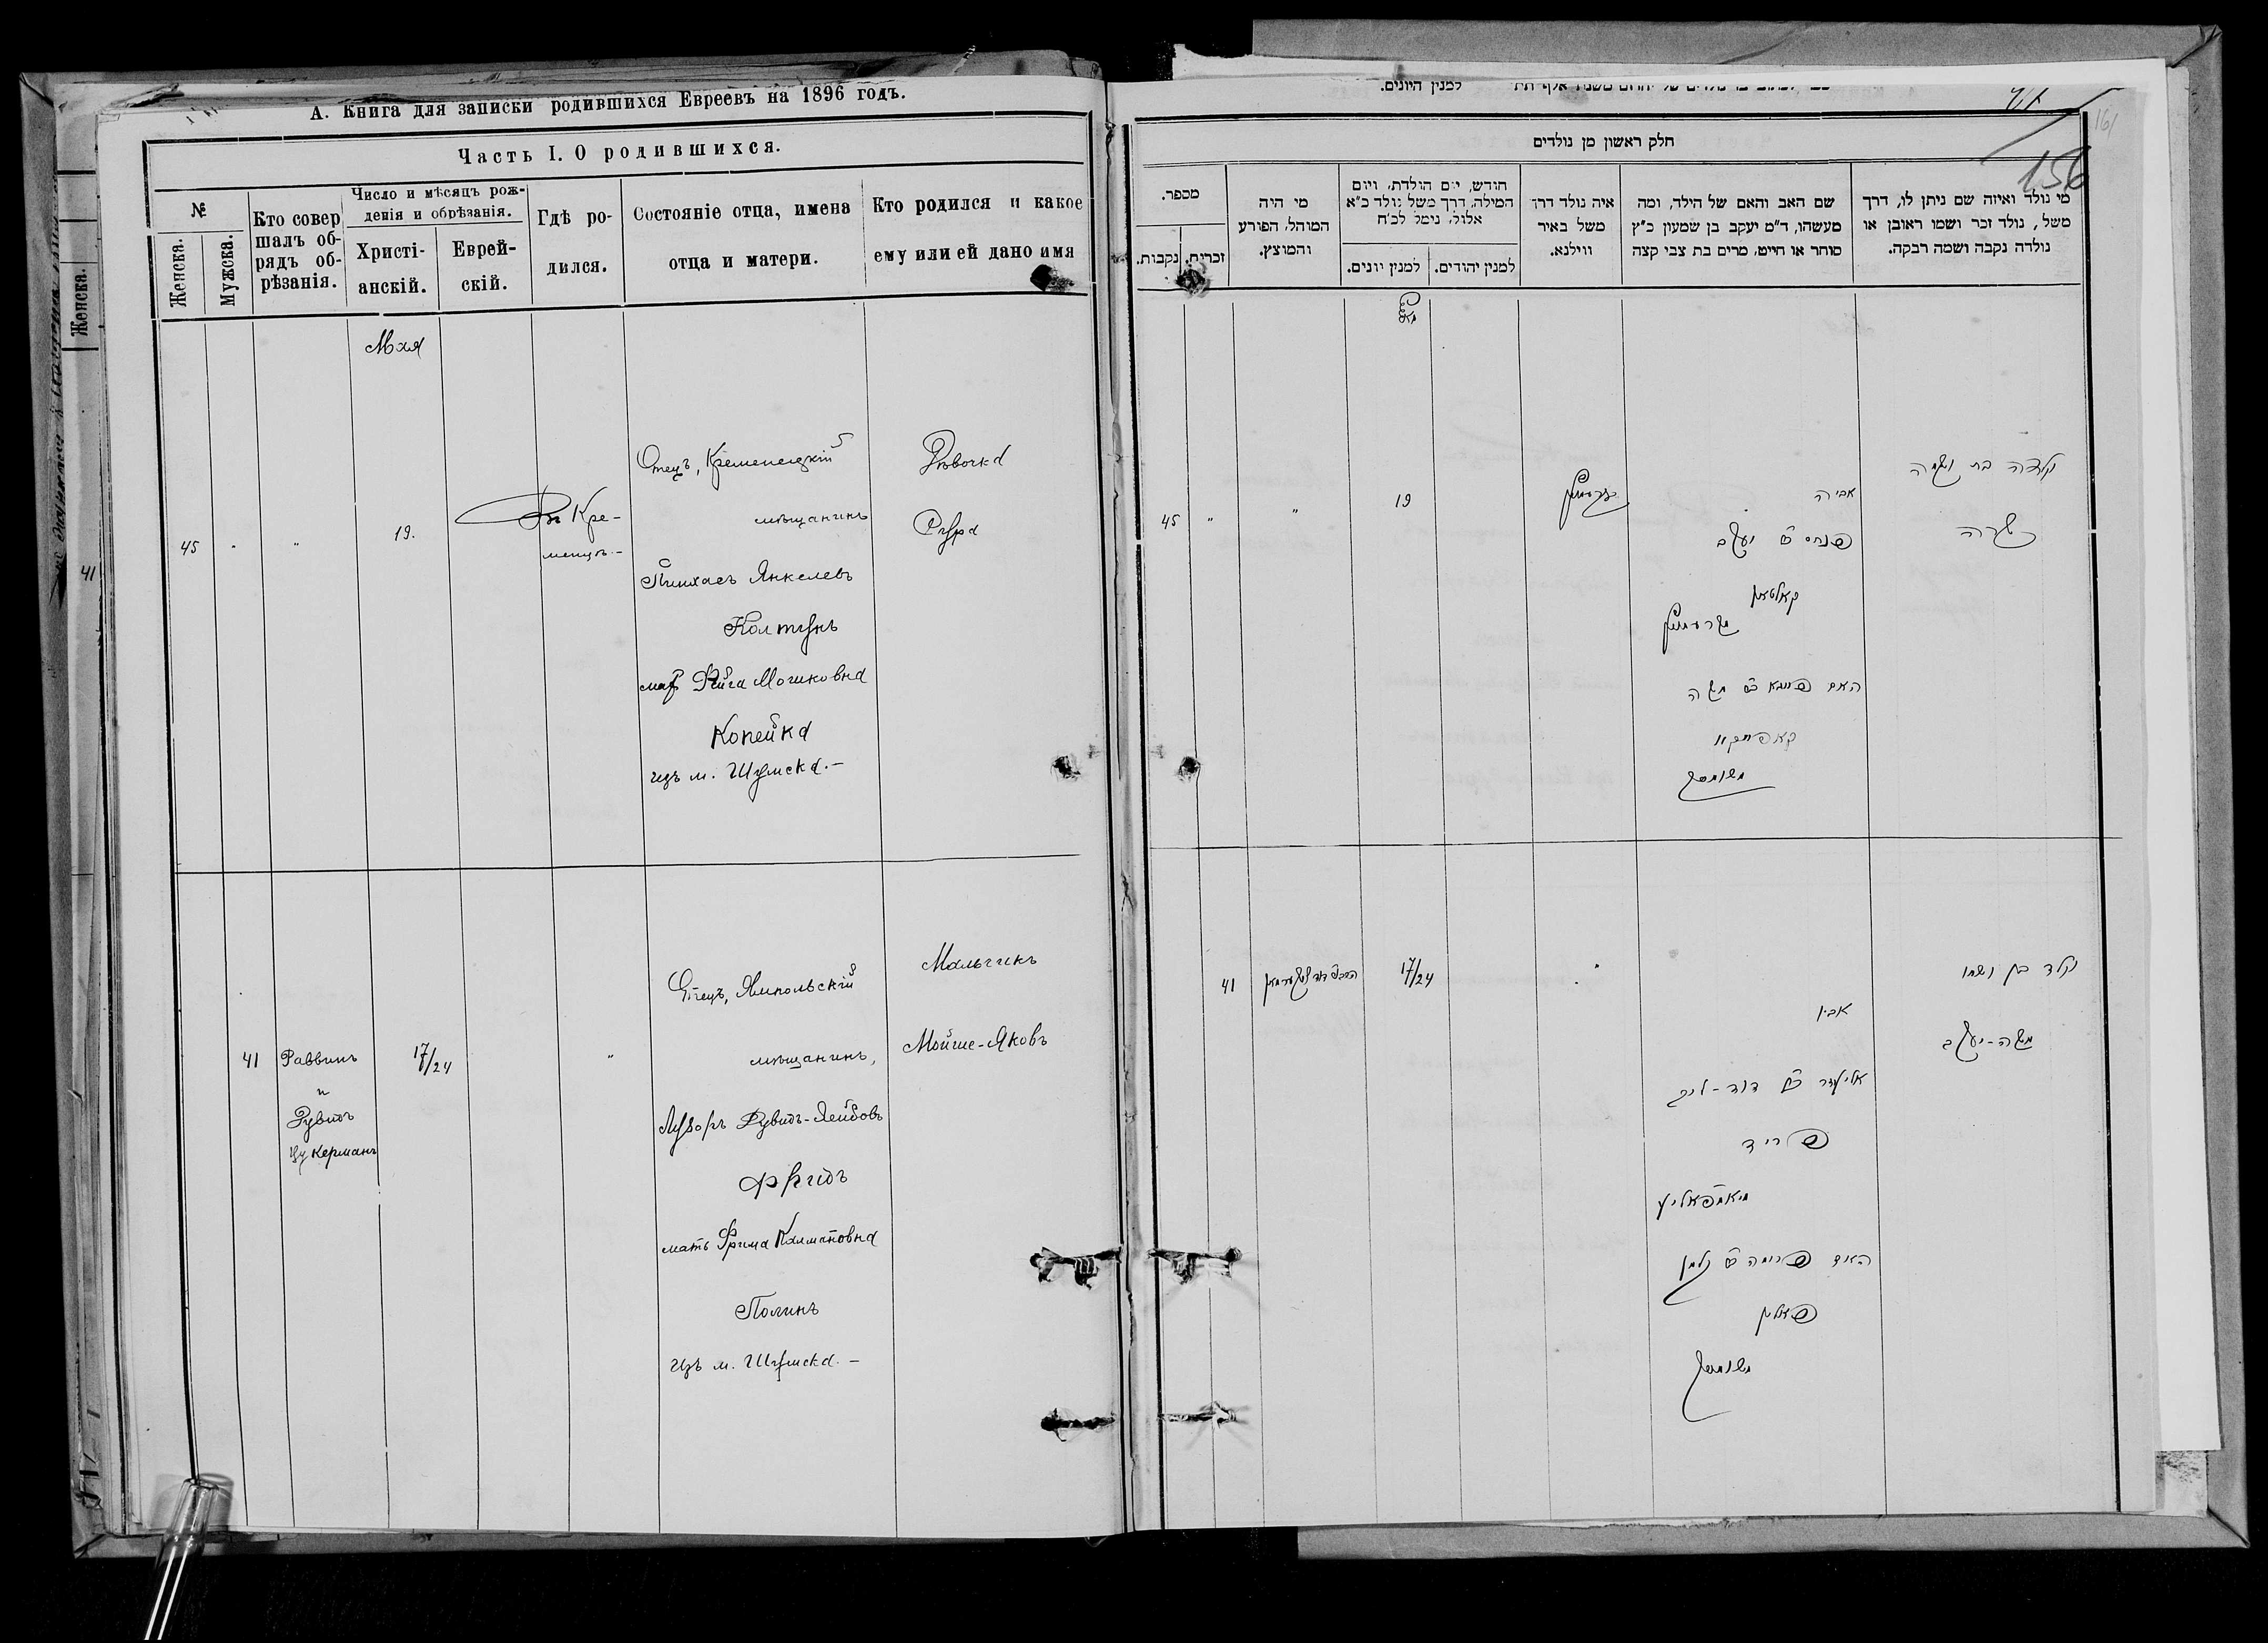 А. Книга для записки родившихся Евреевъ на 1896 годъ.
Часть I. О родившихся.
№
Женска.
Мужска.
Кто совер
шалъ об-
рядъ об-
рѣзанія.
Число и мѣсяцъ рож-
денія и обрѣзанія.
Христі-
анскій.
Еврей-
скій.
Гдѣ ро-
дился.
Состояніе отца, имена
отца и матери.
Кто родился и какое
ему или ей дано имя
Женска.
41
Мая
45
"
"
19.
Въ Кре-
менцѣ.-
Отецъ, Кременецкій
мѣщанинъ
Пинхасъ Янкелевъ
Колтунъ
мать Фейга Мошковна
Копейка
изъ м. Шумска.-
Дѣвочка
Сура
41
Раввинъ
и
Дувидъ
Цукерманъ
17/24
"
Отецъ, Ямпольскій
мѣщанинъ,
Лузоръ Дувидъ-Лейбовъ
Фридъ
мать Фрима Калмановна
Полинъ
изъ м. Шумска.-
Мальчикъ
Мойше-Яковъ
למנין היונים.
161
156
חלק ראשון מן נולדים
מספר.
זכרים.
נקבות.
מי היה
המוהל, הפורע
והמוצץ.
חודש, יום הולדת, ויום
המילה, דרך משל נולד כ"א
אלול, נימל לכ"ח
למנין יונים.
למנין יהודים.
איה נולד דרך
משל באיר
ווילנא.
שם האב והאם של הילד, ומה
מעשהו, ד"מ יעקב בן שמעון כ"ץ
סוחר או חייט, מרים בת צבי קצה
מי נולד ואיזה שם ניתן לו, דרך
משל, נולד זכר ושמו ראובן או
נולדה נקבה ושמה רבקה.
45
"
"
19
אביה
פנחס ב"ר יעקב
קאלטאן
האם פייגא ב"ר משה
קאפייקא
משומסק
נולדה בת ושמה
שרה
41
17/24
"
אביו
אליעזר ב"ר דוד-ליב
פריד
מיאמפאליע
האם פרימה ב"ר קלמן
פאלין
משומסק
נולד בן ושמו
משה-יעקב